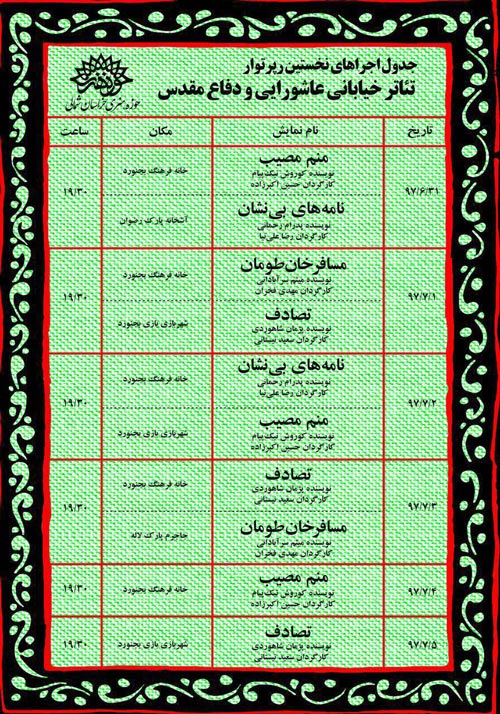 جدول اجراهای نخستین رپرتوار
تئاتر خیابانی عاشورایی و دفاع مقدس
حوزه هنری خراسان شمالی
تاریخ
نام نمایش
مکان
ساعت
۹۷/۶/۳۱
منم مصیب
نویسنده کوروش نیک‌پیام
کارگردان حسین اکبرزاده
خانه فرهنگ بجنورد
۱۹/۳۰
نامه‌های بی‌نشان
نویسنده پدرام رحمانی
کارگردان رضا علی‌نیا
آشخانه پارک رضوان
۹۷/۷/۱
مسافرخان‌طومان
نویسنده میثم سرآبادانی
کارگردان مهدی فخران
خانه فرهنگ بجنورد
۱۹/۳۰
تصادف
نویسنده پژمان شاهوردی
کارگردان سعید نیستانی
شهربازی بازی بجنورد
۹۷/۷/۲
نامه‌های بی‌نشان
نویسنده پدرام رحمانی
کارگردان رضا علی‌نیا
خانه فرهنگ بجنورد
۱۹/۳۰
منم مصیب
نویسنده کوروش نیک‌پیام
کارگردان حسین اکبرزاده
شهربازی بازی بجنورد
۹۷/۷/۳
تصادف
نویسنده پژمان شاهوردی
کارگردان سعید نیستانی
خانه فرهنگ بجنورد
۱۹/۳۰
مسافرخان‌طومان
نویسنده میثم سرآبادانی
کارگردان مهدی فخران
جاجرم پارک لاله
۹۷/۷/۴
منم مصیب
نویسنده کوروش نیک‌پیام
کارگردان حسین اکبرزاده
خانه فرهنگ بجنورد
۱۹/۳۰
۹۷/۷/۵
تصادف
نویسنده پژمان شاهوردی
کارگردان سعید نیستانی
شهربازی بازی بجنورد
۱۹/۳۰